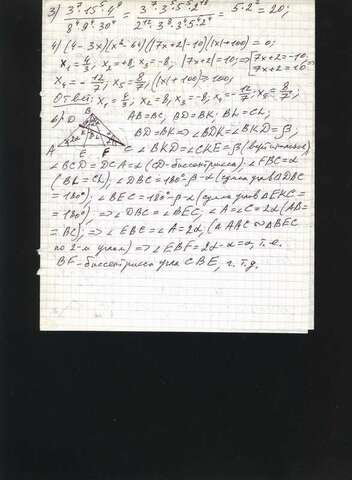 3) 3⁷·15⁵·4⁹ / 8⁴·9⁴·30⁴ = = 5·2² = 20;
4) (4-3x)(x²-64)(|7x+2|-10)(|x|+100) = 0;
x₁ = 4/3; x₂ = +8; x₃ = -8; |7x+2| = 10; ⇒ [7x+2 = -10, 7x+2 = 10 ⇒
x₄ = -12/7; x₅ = 8/7; (|x|+100) ≠
Ответ: x₁ = 4/3; x₂ = 8, x₃ = -8, x₄ = -12/7; x₅ = 8/7;
AB = BC; BD = BK; BL = CL;
BD = BK ⇒ ∠BDK = ∠BKD = β;
A E F C ∠BKD = ∠CKE = β (вертикальные)
∠BCD = DCA = α (CD-биссектриса); ∠FBC = α
(BL = CL); ∠DBC = 180°-β-α (сумма углов △DBC
= 180°); ∠BEC = 180°-β-α (сумма углов △EKC =
= 180°) ⇒ ∠DBC = ∠BEC, ∠A = ∠C = 2α (AB =
= BC); ⇒ ∠EBC = ∠A = 2α, (△ABC ∾ △BEC
по 2-м углам) ⇒ ∠EBF = 2α-α = α, т.е.
BF-биссектриса угла CBE, ч.т.д.